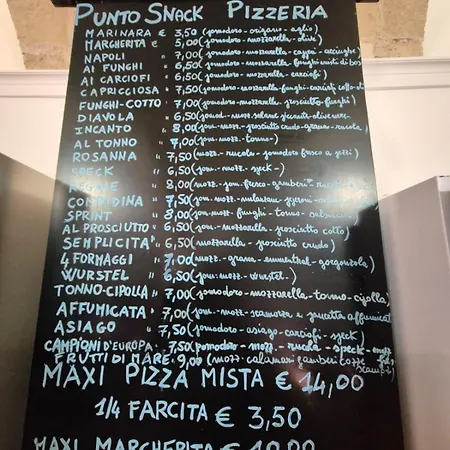 PUNTO SNACK PIZZERIA
MARINARA € 3,50 (pomodoro-origano-aglio)
MARGHERITA € 5,00 (pomodoro-mozzarella-olive)
NAPOLI " 7,00 (pomodoro-mozzarella-capperi-acciughe)
AI FUNGHI " 6,50 (pomodoro-mozzarella-funghi misti di bosco
AI CARCIOFI " 6,50 (pomodoro-mozzarella-carciofi)
CAPRICCIOSA " 7,50 (pomodoro-mozzarella-funghi-carciofi-cotto-olive
FUNGHI-COTTO " 7,00 (pomodoro-mozzarella-prosciutto-funghi)
DIAVOLA " 6,50 (pomod-mozz. salame piccante olive
INCANTO " 8,00 (pom-mozz-prosciutto crudo-grana-rucola)
AL TONNO " 7,00 (pom-mozz-tonno-)
ROSANNA " 7,50 (mozz-rucola-pomodoro fresco a pezzi)
SPECK " 6,50 (pom-mozz-speck-)
8,00 (mozz-pom.fresco-gamberi-
" 7,50 (pom-mozz-melanzane-peperoni-
SPRINT " 8,00 (pom-mozz-funghi-tonno-
AL PROSCIUTTO " 6,50 (pom-mozzarella-prosciutto cotto)
SEMPLICITA' " 6,50 (mozzarella-prosciutto crudo)
4 FORMAGGI " 7,00 (mozz-grana-emmenthal-gorgonzola)
WURSTEL " 6,50 (pom-mozz-wurstel.)
TONNO-CIPOLLA " 7,00 (pomodoro-mozzarella-tonno-cipolla)
AFFUMICATA " 7,00 (pom-mozz-scamorza e pancetta affumicata)
ASIAGO " 7,50 (pomodoro-asiago-carciofi-speck)
CAMPIONI D'EUROPA " 7,50 (pomodoro-mozz-rucola-speck-
FRUTTI DI MARE " 9,00 (mozz-calamari gamberi cozze
scampi)
MAXI PIZZA MISTA € 14,00
1/4 FARCITA € 3,50
MAXI MARGHERITA € 10,00